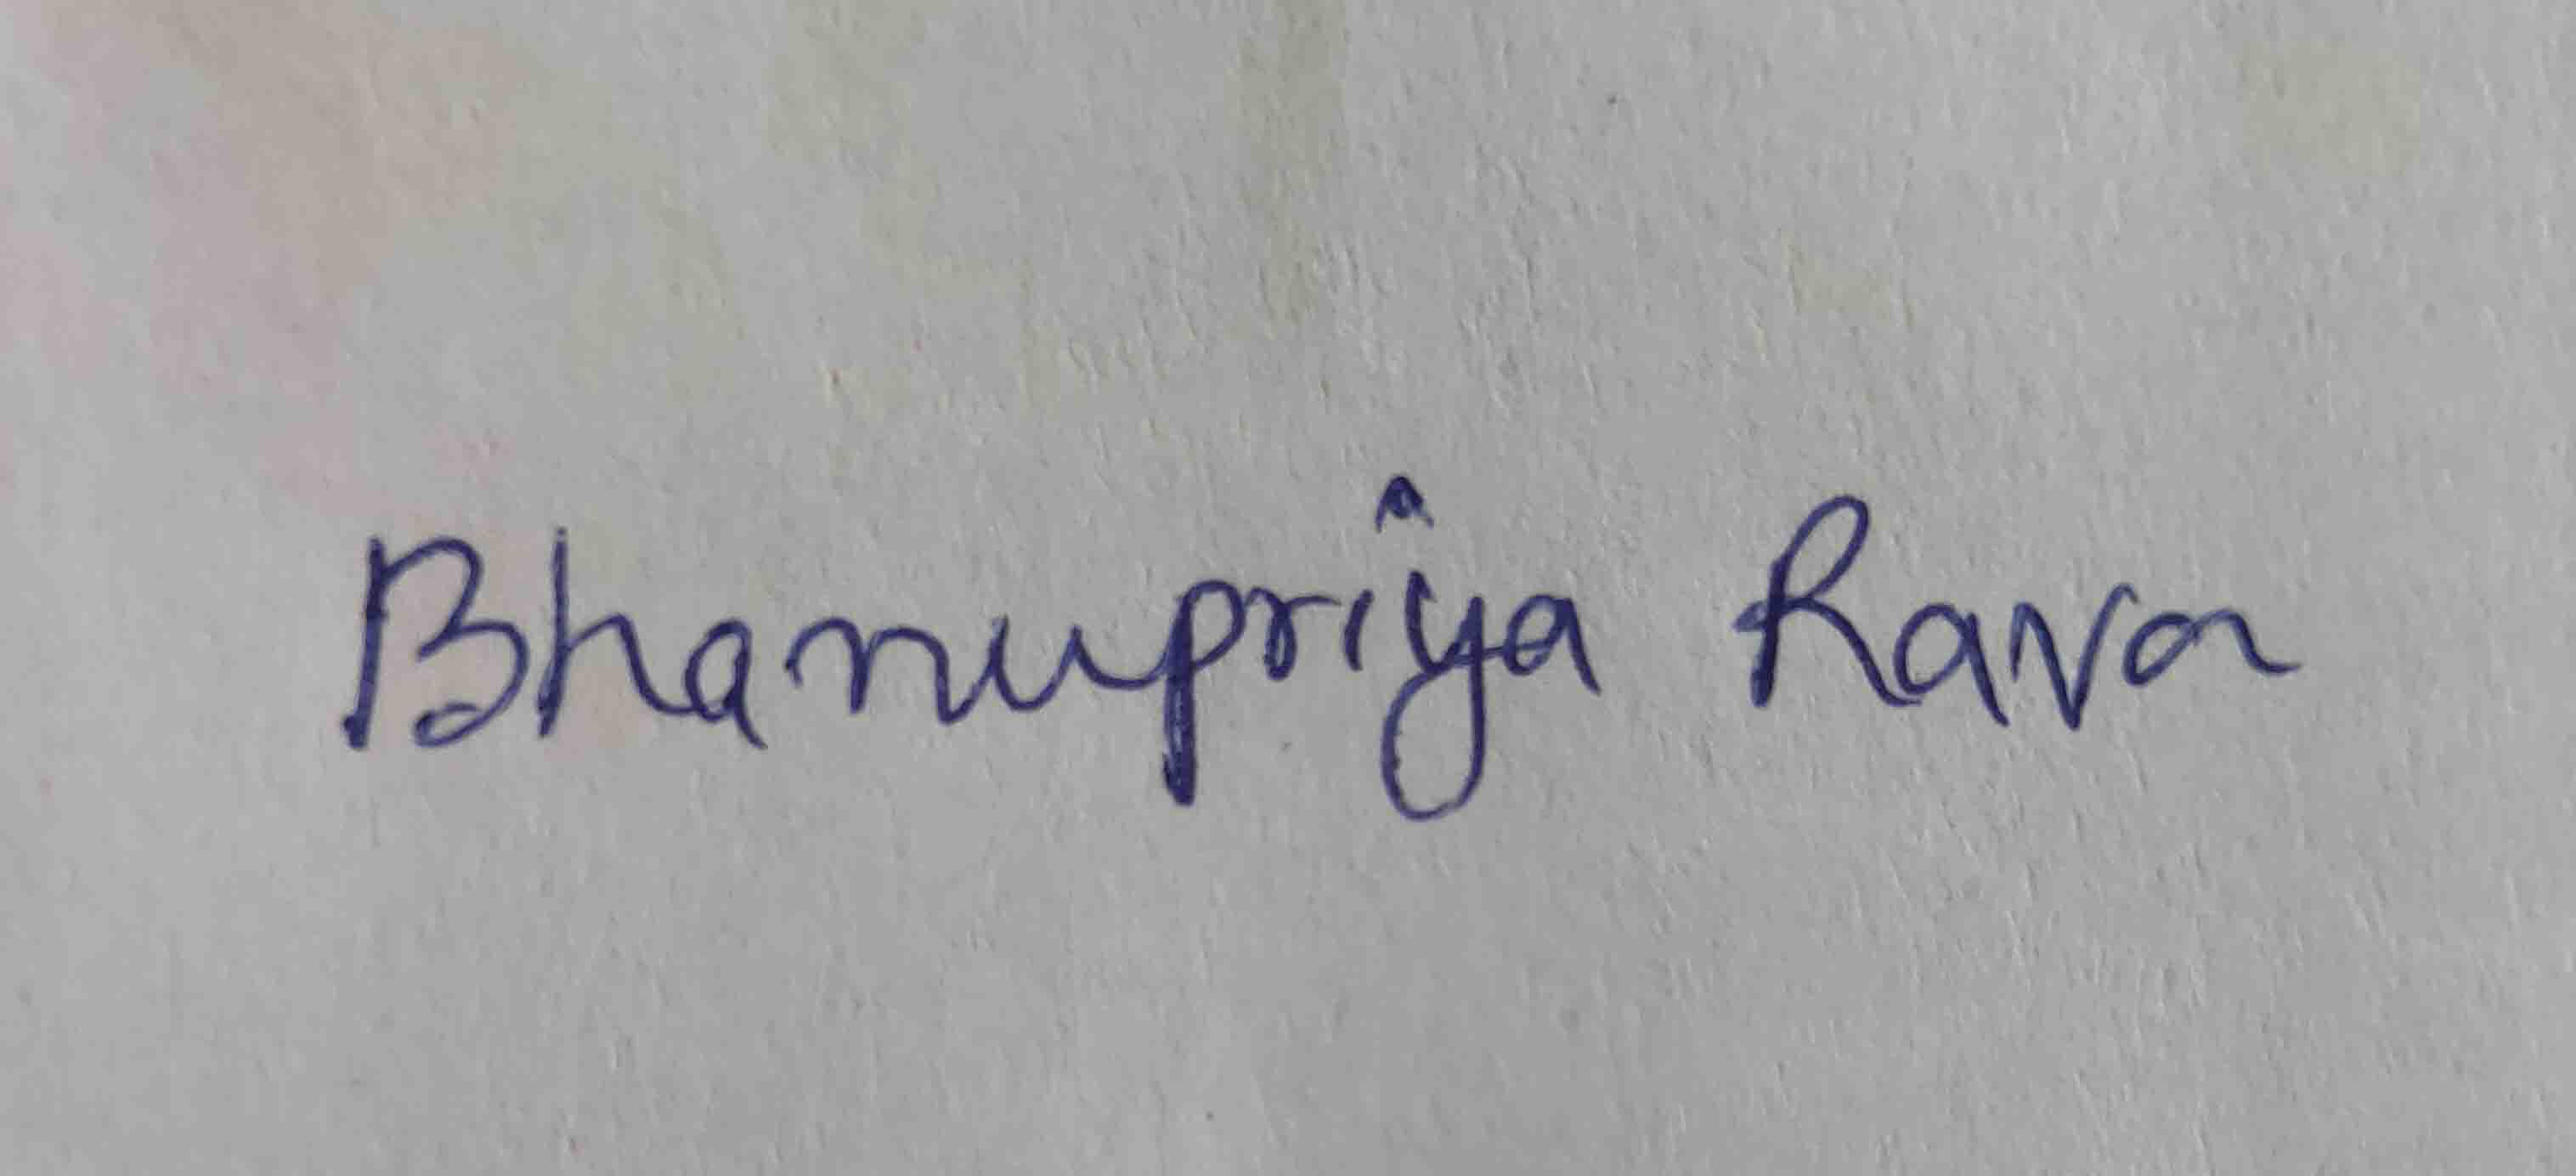 Bhanupriya Rava